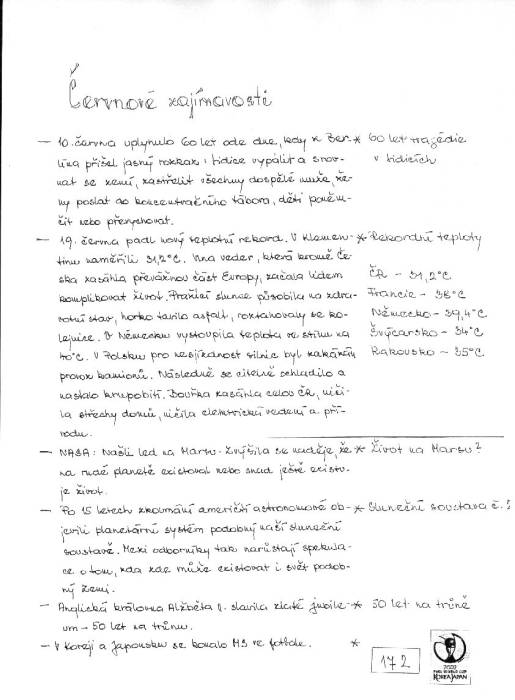 Červnové zajímavosti
— 10. června uplynulo 60 let ode dne, kdy z Ber- * 60 let tragédie
lína přišel jasný rozkaz: Lidice vypálit a srov- v Lidicích
nat se zemí, zastřelit všechny dospělé muže, že-
ny poslat do koncentračního tábora, děti poněm-
čit nebo převychovat.
— 19. června padl nový teplotní rekord. V Klemen- * Rekordní teploty
tinu naměřili 31,2°C. Vlna veder, která kromě Če-
ska zasáhla převážnou část Evropy, začala lidem ČR – 31,2°C
komplikovat život. Pražící slunce působilo na zdra- Francie – 38°C
votní stav, horko tavilo asfalt, roztahovaly se ko- Německo – 39,4°C
lejnice. V Německu vystoupila teplota ve stínu na Švýcarsko – 34°C
40°C. V Polsku pro nesjízdnost silnic byl zakázán Rakousko – 35°C
provoz kamionů. Následně se citelně ochladilo a
nastalo krupobití. Bouřka zasáhla celou ČR, niči-
la střechy domů, ničila elektrická vedení a pří-
rodu.
— NASA: Našli led na Marsu. Zvýšila se naděje, že * Život na Marsu?
na rudé planetě existoval nebo snad ještě existu-
je život.
— Po 15 letech zkoumání američtí astronomové ob- * Sluneční soustava č.
jevili planetární systém podobný naší sluneční
soustavě. Mezi odborníky tak narůstají spekula-
ce o tom, zda zde může existovat i svět podob-
ný Zemi.
— Anglická královna Alžběta II. slavila zlaté jubile- * 50 let na trůně
um – 50 let na trůnu.
— V Koreji a Japonsku se konalo MS ve fotbale. *
172
2002
FIFA WORLD CUP
KOREA JAPAN